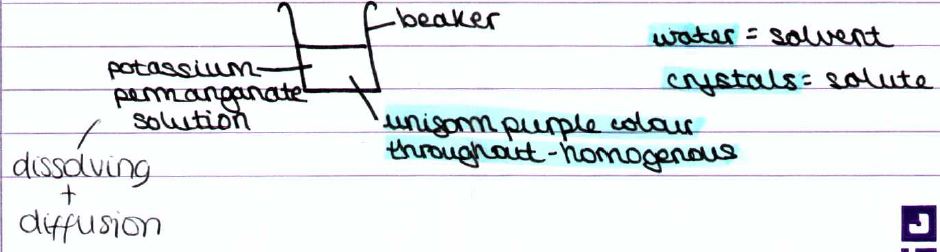 beaker
water = solvent
crystals = solute
potassium
permanganate
solution
uniform purple colour
throughout - homogenous
dissolving
+
diffusion